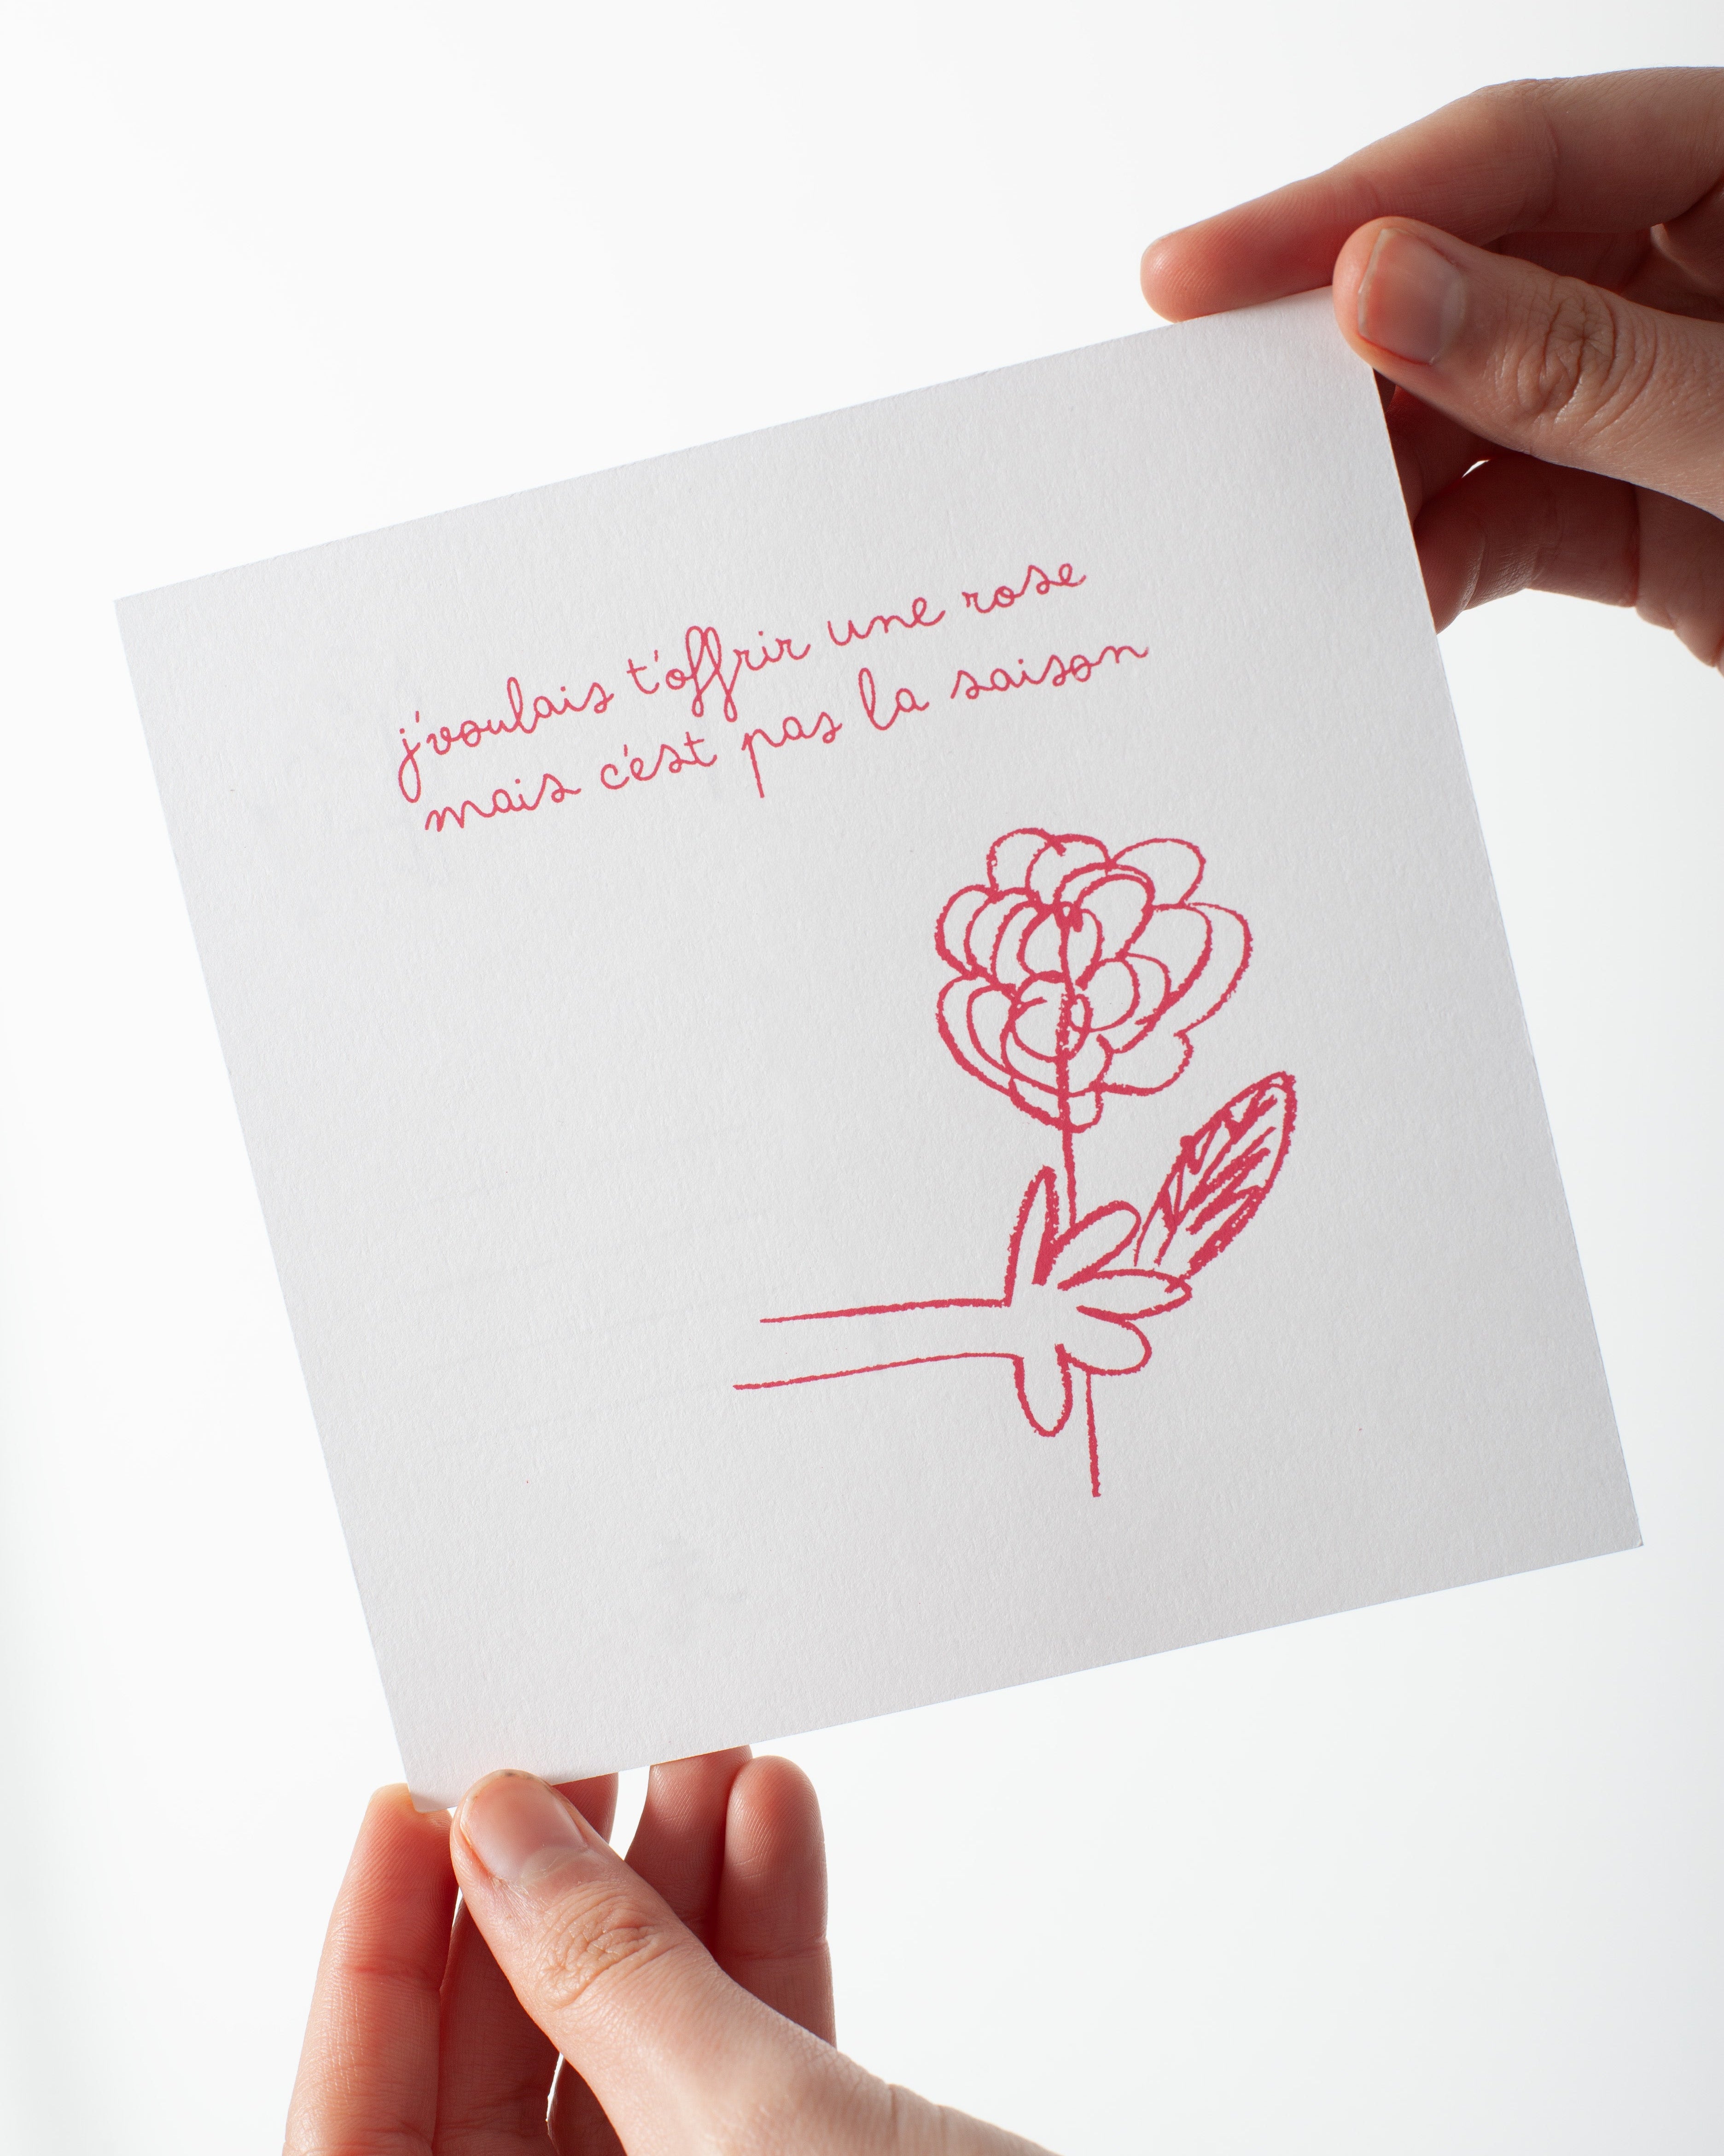 j'voulais t'offrir une rose
mais c'est pas la saison